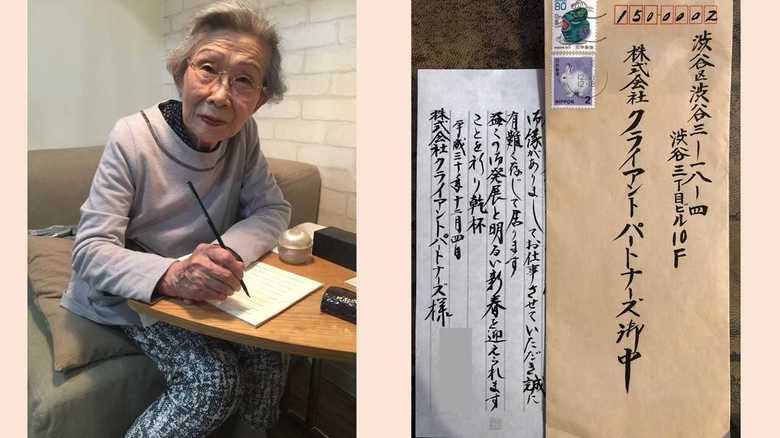 80
NIPPON 2
1500002
渋谷区渋谷三ー一八ー四
渋谷三丁目ビル10F
株式会社クライアントパートナーズ御中
御縁がありましてお仕事させていただき誠に
有難く存じて居ります
益々の御発展と明るい新春を迎えられます
ことを祈り乾杯
平成三十年十二月四日
株式会社クライアントパートナーズ様